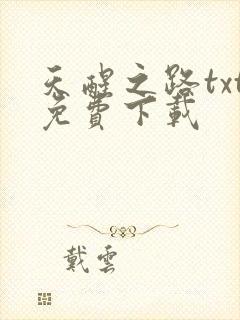 天醒之路txt
免費下載
戴雲